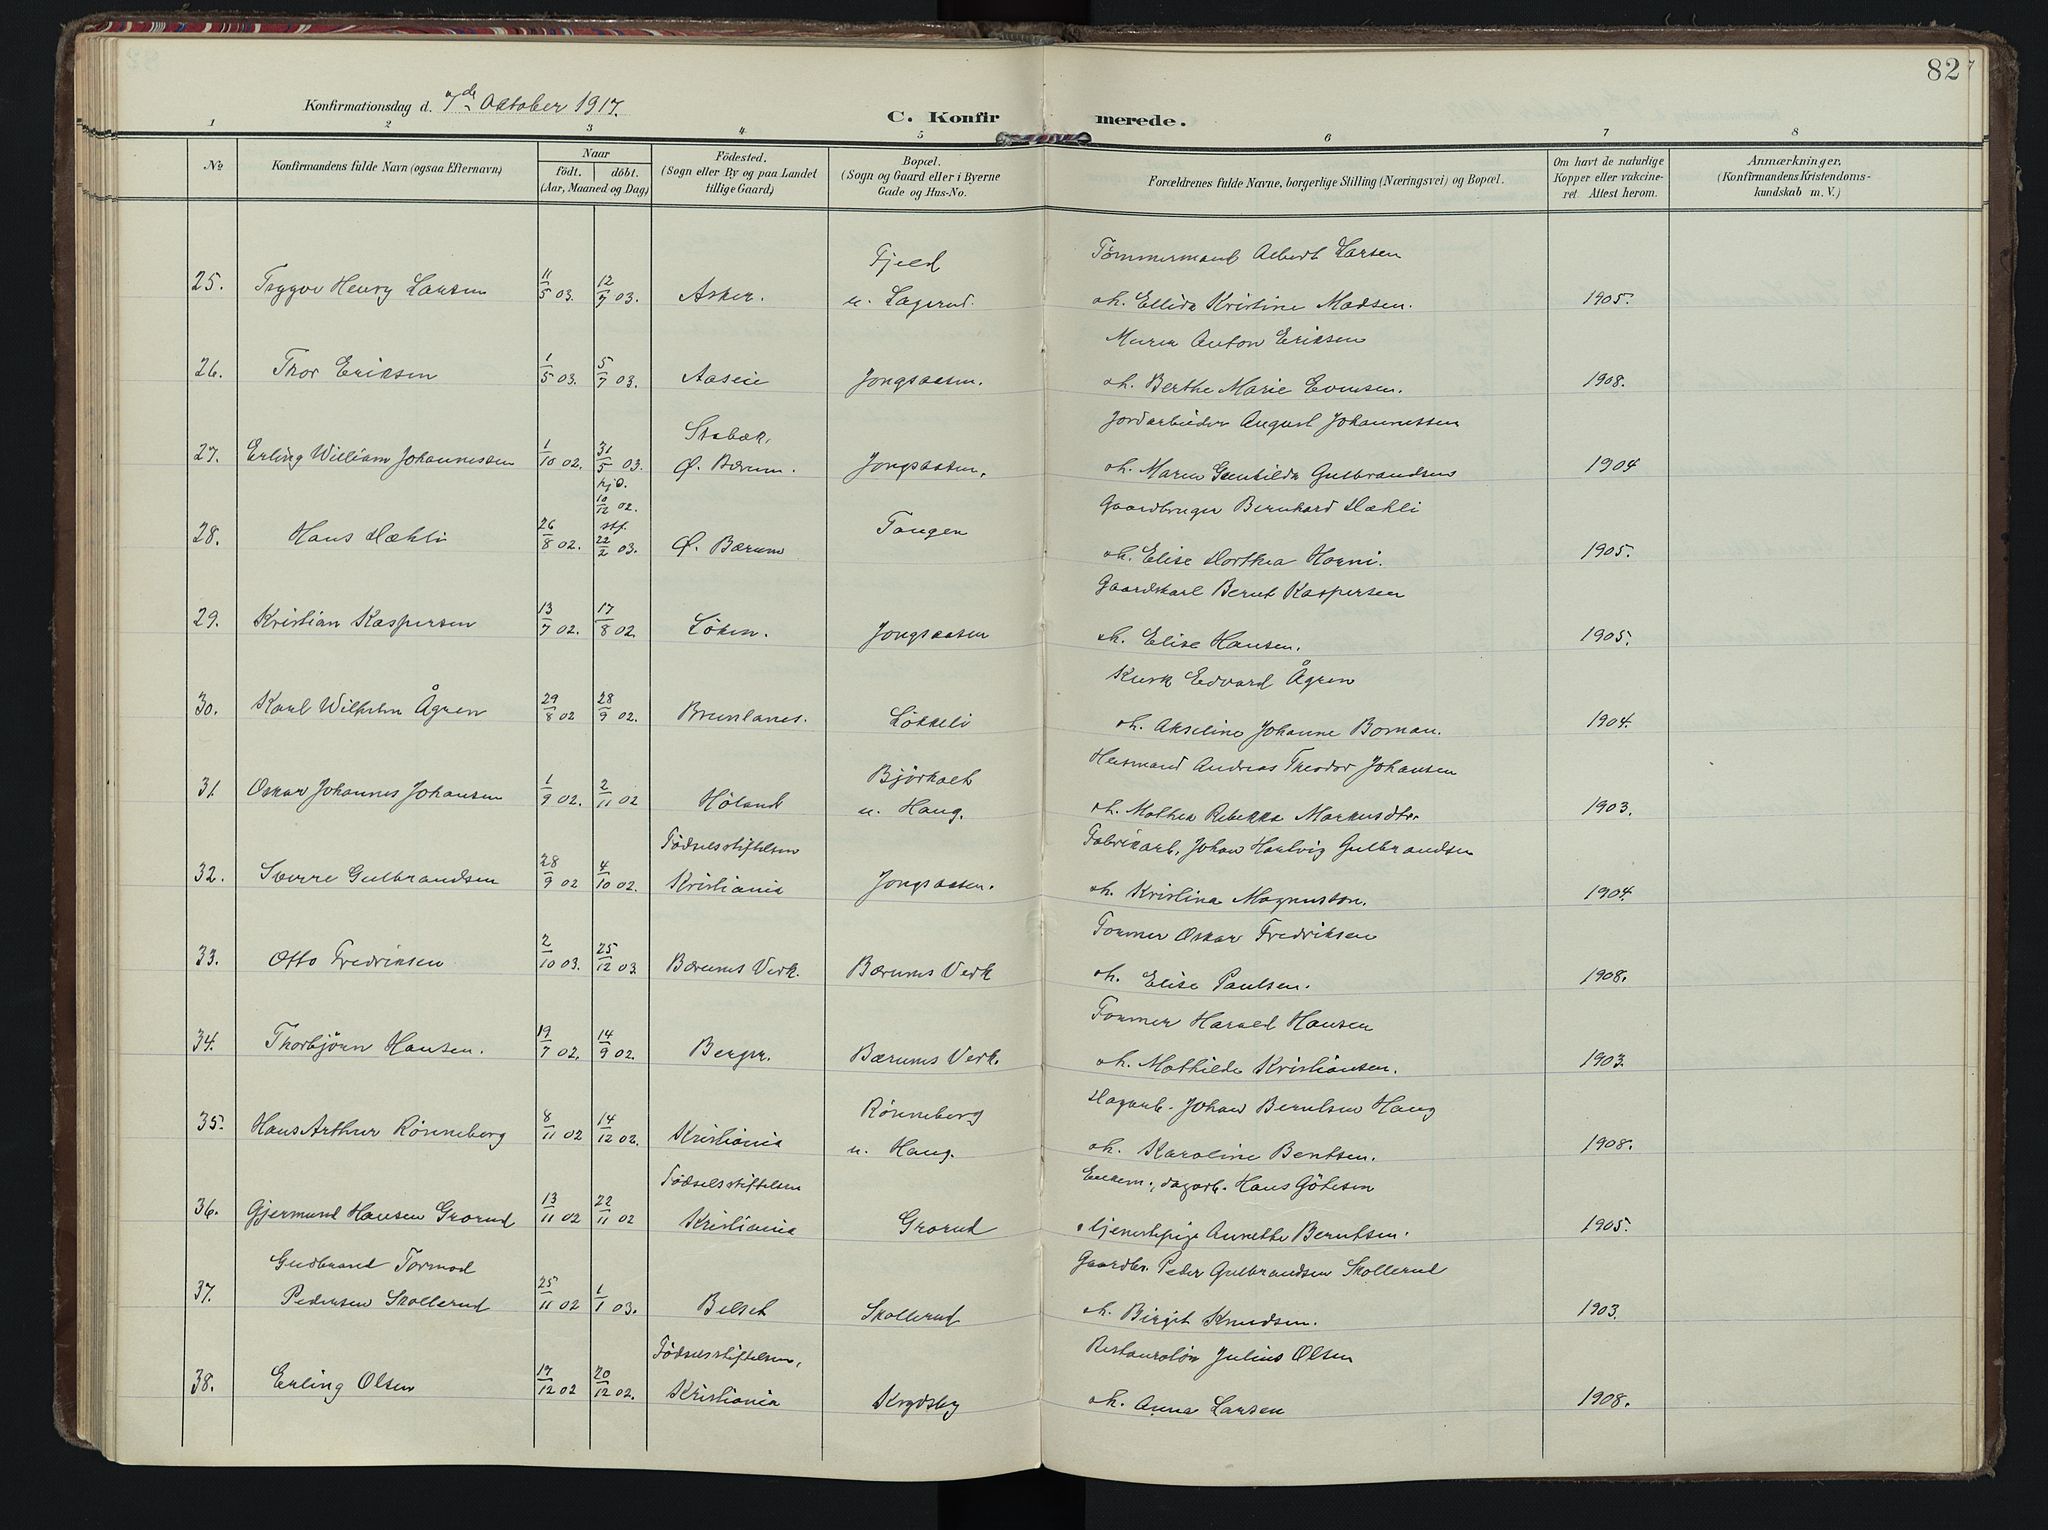 82
Konfirmationsdag d. 7de October 1917.
C. Konfirmerede.
1 2 3 4 5 6 7 8
No
Konfirmandens fulde Navn (ogsaa Efternavn)
Naar
født. døbt.
(Aar, Maaned og Dag)
Fødested.
(Sogn eller By og paa Landet
tillige Gaard)
Bopæl.
(Sogn og Gaard eller i Byerne
Gade og Hus-No.
Forældrenes fulde Navne, borgerlige Stilling (Næringsvei) og Bopæl.
Om havt de naturlige
Kopper eller vakcine-
ret. Attest herom.
Anmærkninger.
(Konfirmandens Kristendoms-
kundskab m. V.)
Fjeld Tømmermand Albert Larsen
25. Trygve Henry Larsen 11/5 03. 12/7 03. Asker. u. Lagerud. oh. Ellida Kristine Madsen. 1905.
Murer Anton Eriksen
26. Thor Eriksen 1/5 03. 5/7 03. Aaseie Jongsaasen. oh. Berthe Marie Evensen. 1908.
Stabæk, Jordarbeider August Johannessen
27. Erling William Johannessen 1/10 02. 31/5 03. Ø. Bærum. Jongsaasen, oh. Maren Gunhilda Gulbrandsen 1904
hjd. 10/12 02. Gaardbruger Bernhard Dæhli
28. Hans Dæhli 26/8 02. stf. 22/2 03. Ø. Bærum Tangen oh. Elise Dorthea Horni. 1905.
Gaardskarl Bernt Kaspersen
29. Kristian Kaspersen 13/7 02. 17/8 02. Løken. Jongsaasen oh. Elise Hansen. 1905.
Kusk Edvard Ågren
30. Karl Wilhelm Ågren 29/8 02 28/9 02. Brunlanes. Løkkeli oh. Akseline Johanne Boman. 1904.
Bjørkholt Heismand Andreas Theodor Johansen
31. Oskar Johannes Johansen 1/9 02. 2/11 02 Høland u. Haug. oh. Mathea Rebekka Markusdtr. 1903.
Fødselsstiftelsen Fabrikarb. Johan Hartvig Gulbrandsen
32. Sverre Gulbrandsen 28/9 02 4/10 02. Kristiania Jongsaasen. oh. Kristina Magnusson. 1904.
Former Oskar Fredriksen
33. Otto Fredriksen 2/10 03. 25/12 03. Bærums Verk. Bærums Verk oh. Elise Paulsen. 1908.
Former Harald Hansen
34. Thorbjørn Hansen. 19/7 02. 14/9 02. Berger. Bærums Verk. oh. Mathilde Kristiansen. 1903.
Rønneberg Dagarb. Johan Berntsen Haug
35. Hans Arthur Rønneberg 8/11 02 14/12 02. Kristiania u. Haug. oh. Karoline Bentsen. 1908.
Fødselsstiftelsen Enkem., dagarb. Hans Götesen
36. Gjermund Hansen Grorud 13/11 02 22/11 02 Kristiania Grorud tjenestepige Annette Berntsen. 1905.
Gudbrand Tormod Gaardbr. Peder Gulbrandsen Skollerud
37. Pedersen Skollerud 25/11 02 1/1 03. Belset Skollerud oh. Birgit Knudsen. 1903.
Fødselsstiftelsen, Restauratør Julius Olsen
38. Erling Olsen 17/12 02 20/12 02. Kristiania oh. Anna Larsen 1908.